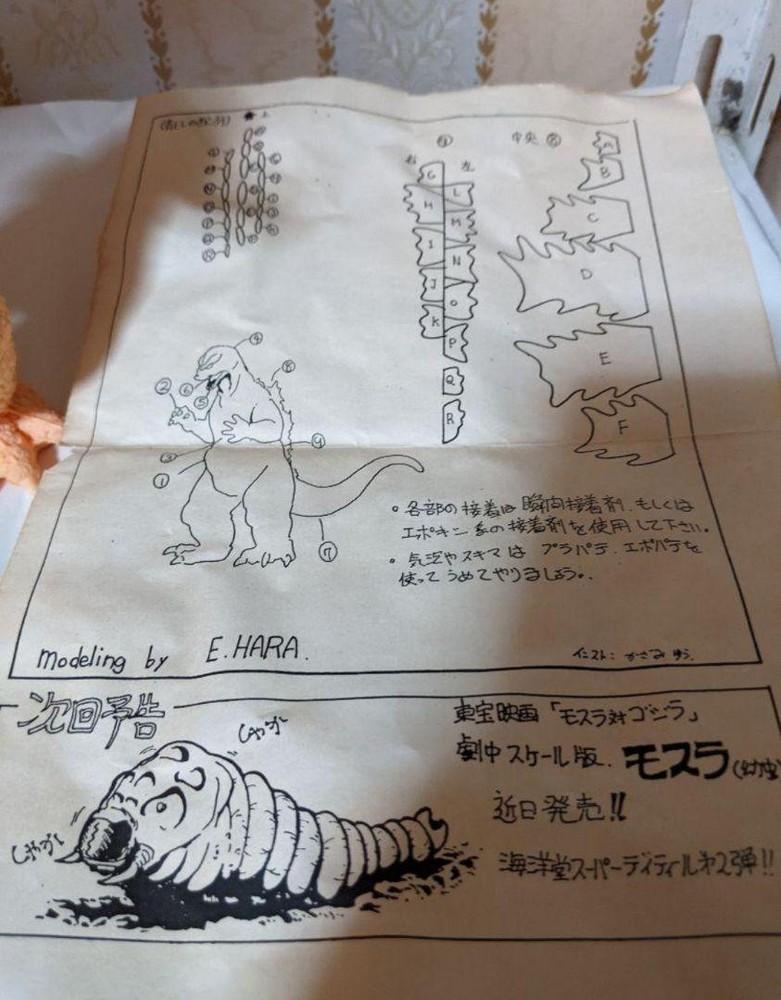 上
右 左
中央
G
H
I
J
K
L
M
N
O
P
Q
R
A
B
C
D
E
F
④
②
⑥
⑤
⑧
③
①
⑨
⑦
・各部の接着は瞬間接着剤、もしくは
エポキシ系の接着剤を使用して下さい。
・気泡やスキマは プラパテ、エポパテを
使ってうめてやりましょう。
modeling by E.HARA.
イラスト:
次回予告
東宝映画「モスラ対ゴジラ」
劇中スケール版、モスラ(幼虫
近日発売!!
海洋堂スーパーディティール第2弾!!